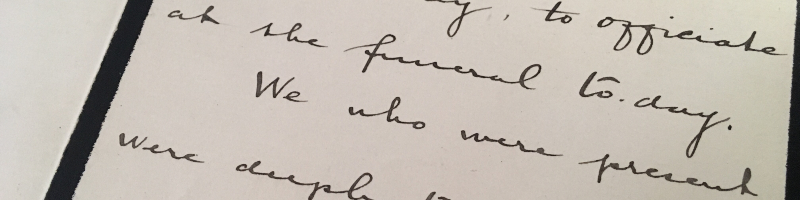 to officiate
at the funeral to-day.
We who were present
were deeply